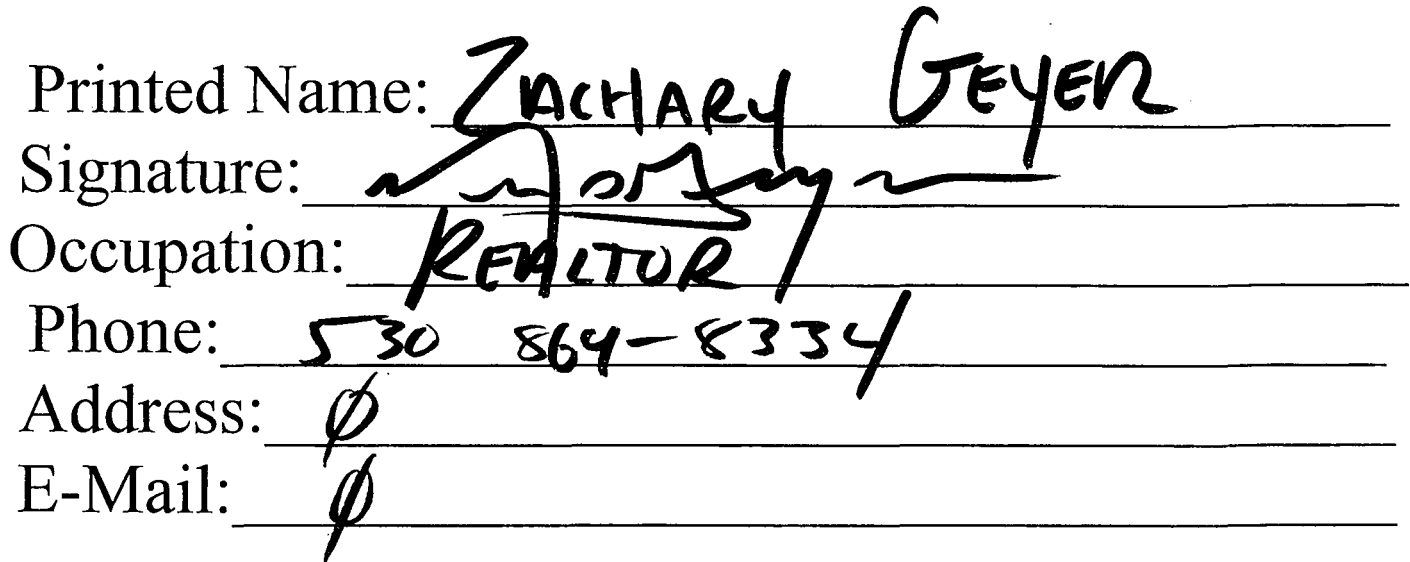 Printed Name: ZACHARY GEYER
Signature:
Occupation: REALTOR
Phone: 530 864-8334
Address: ∅
E-Mail: ∅